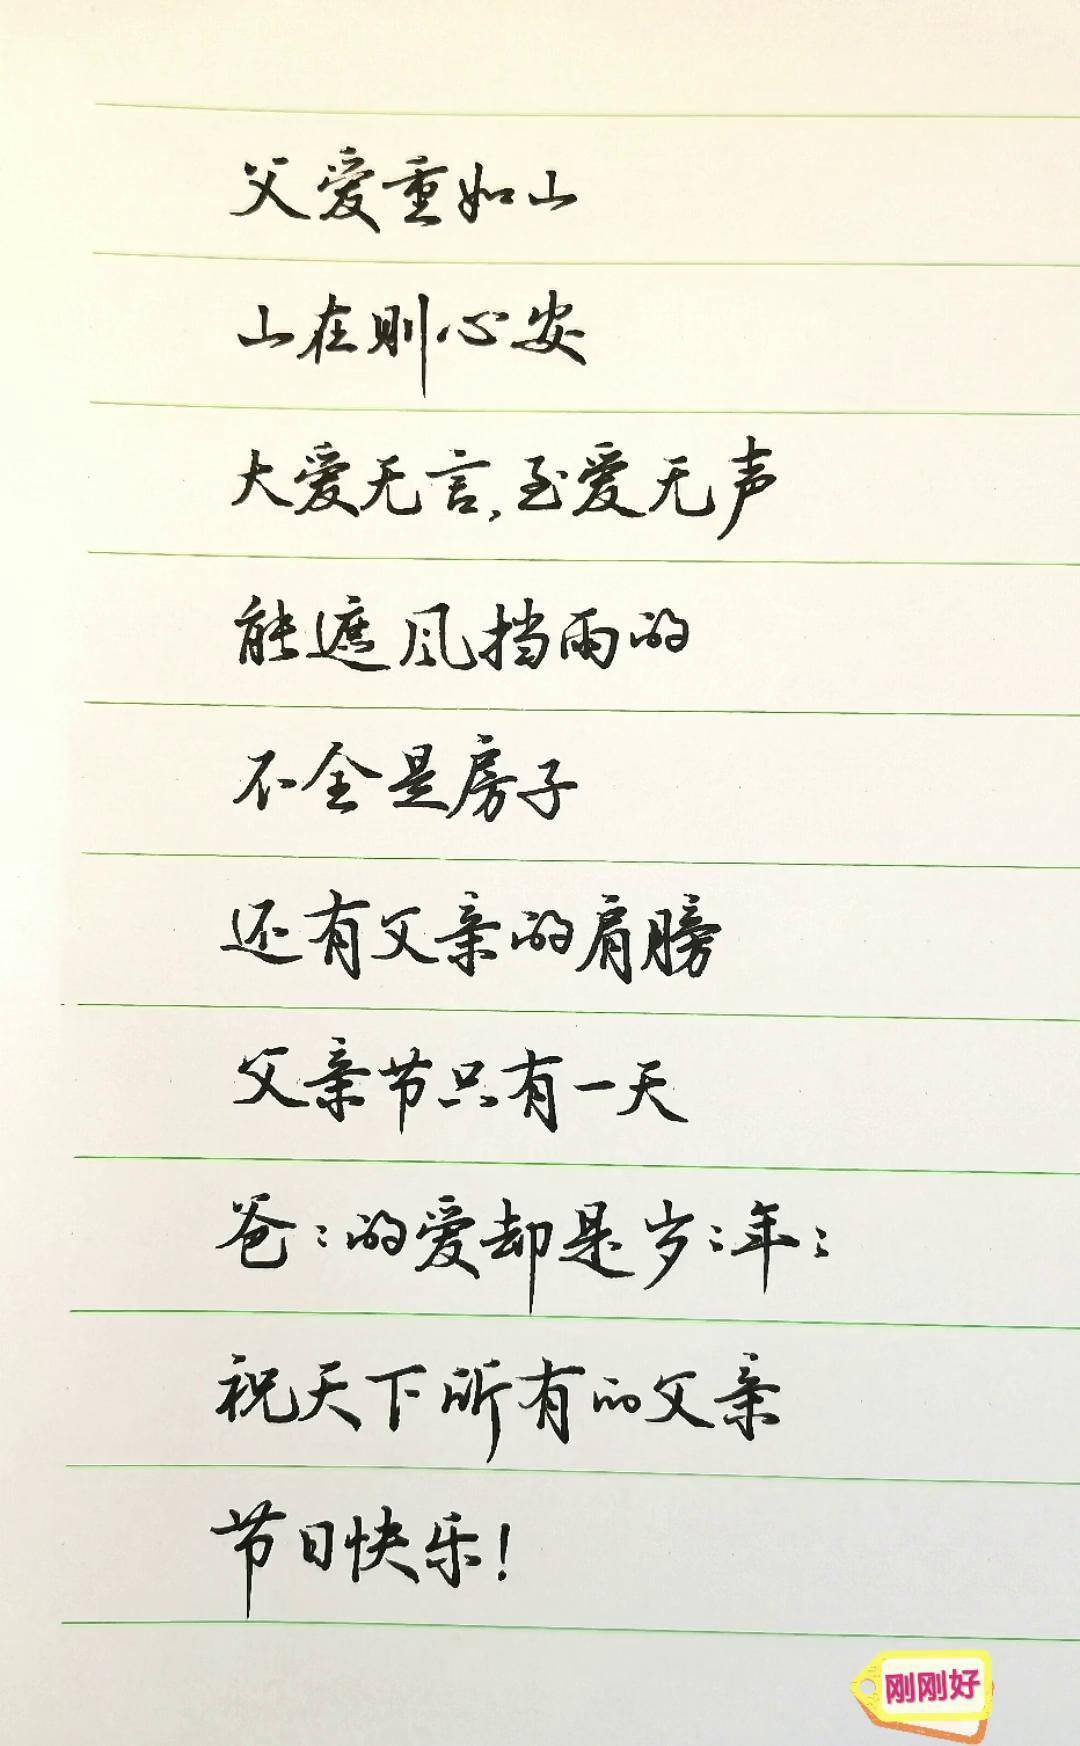 父爱重如山
山在则心安
大爱无言,至爱无声
能遮风挡雨的
不全是房子
还有父亲的肩膀
父亲节只有一天
爸:的爱却是岁:年:
祝天下所有的父亲
节日快乐!
刚刚好